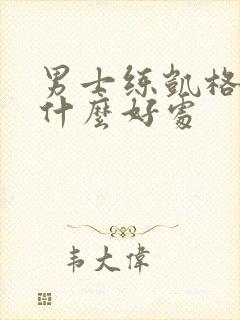 男士练凯格
什麼好處
韦大偉